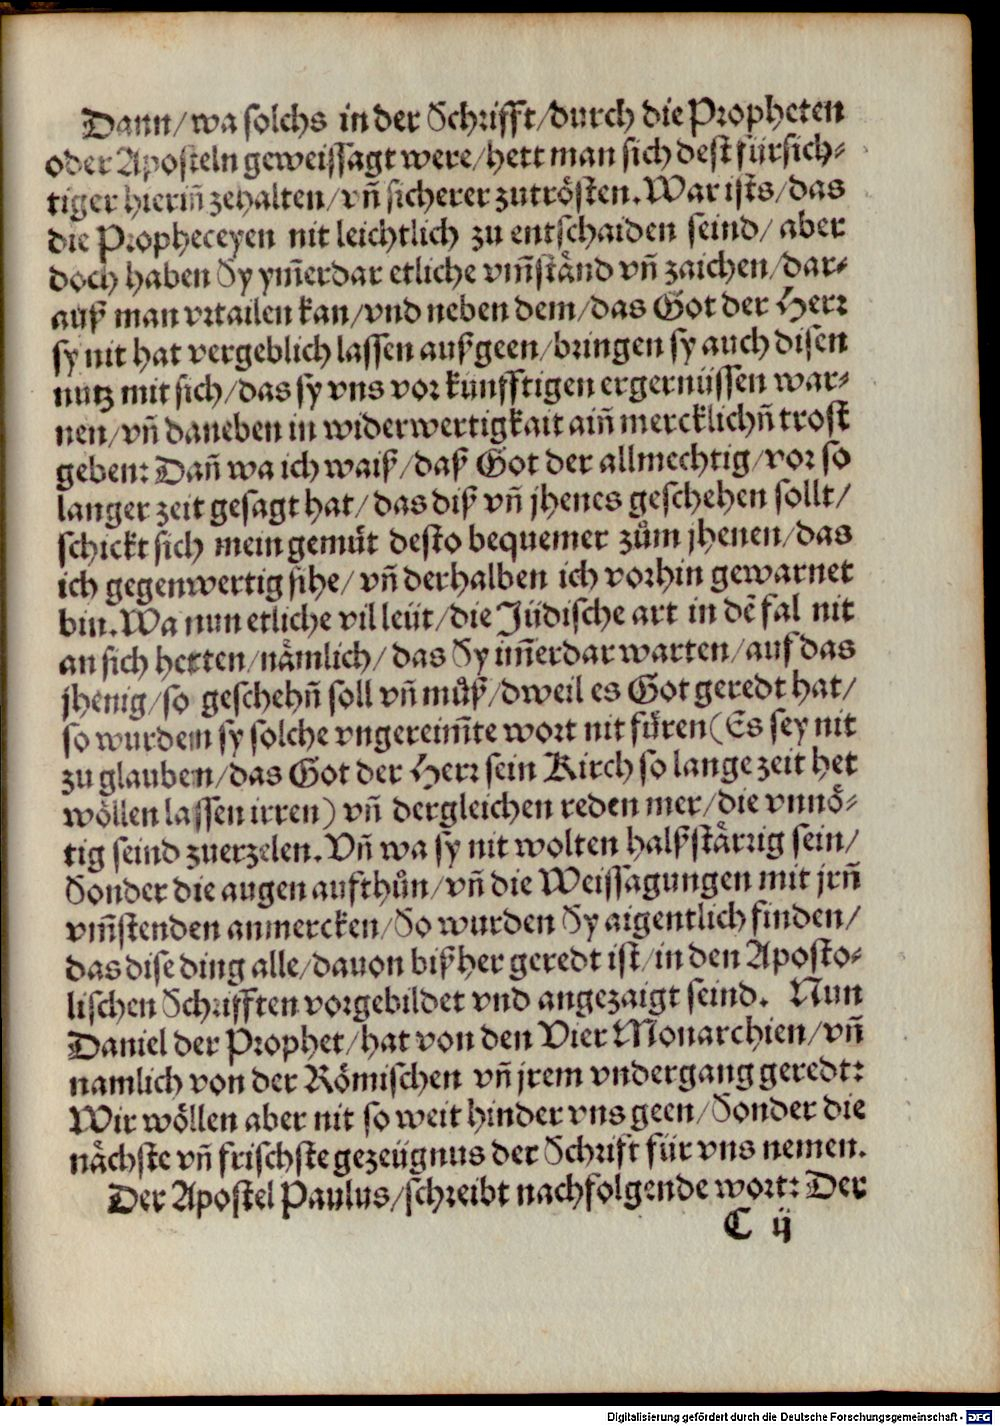 Dann/ wa solchs in der Schrifft/ durch die Propheten
oder Aposteln geweissagt were/ hett man sich dest fürsich⸗
tiger hieriñ zehalten/ vñ sicherer zutrösten. War ists/ das
die Propheceyen nit leichtlich zu entschaiden seind/ aber
doch haben Sy ym̃erdar etliche vm̃ständ vñ zaichen/ dar⸗
auß man vrtailen kan/ vnd neben dem/ das Got der Herr
sy nit hat vergeblich lassen außgeen/ bringen sy auch disen
nutz mit sich/ das sy vns vor künfftigen ergernüssen war⸗
nen/ vñ daneben in widerwertigkait aiñ mercklichñ trost
geben: Dañ wa ich waiß/ daß Got der allmechtig/ vor so
langer zeit gesagt hat/ das diß vñ jhenes geschehen sollt/
schickt sich mein gemüt desto bequemer zům jhenen/ das
ich gegenwertig sihe/ vñ derhalben ich vorhin gewarnet
bin. Wa nun etliche vil leüt/ die Jüdische art in dẽ fal nit
an sich hetten/ nämlich/ das Sy im̃erdar warten/ auf das
jhenig/ so geschehñ soll vñ můß/ dweil es Got geredt hat/
so wurden sy solche vngereim̃te wort nit füren (Es sey nit
zu glauben/ das Got der Herr sein Kirch so lange zeit het
wöllen lassen irren) vñ dergleichen reden mer/ die vnnö⸗
tig seind zuerzelen. Vñ wa sy nit wolten halßstärrig sein/
Sonder die augen aufthůn/ vñ die Weissagungen mit jrñ
vm̃stenden anmercken/ So wurden Sy aigentlich finden/
das dise ding alle/ dauon bißher geredt ist/ in den Aposto⸗
lischen Schrifften vorgebildet vnd angezaigt seind. Nun
Daniel der Prophet/ hat von den Vier Monarchien/ vñ
namlich von der Römischen vñ jrem vndergang geredt:
Wir wöllen aber nit so weit hinder vns geen/ Sonder die
nächste vñ frischste gezeügnus der Schrift für vns nemen.
Der Apostel Paulus/ schreibt nachfolgende wort: Der
C ij
Digitalisierung gefördert durch die Deutsche Forschungsgemeinschaft - DFG